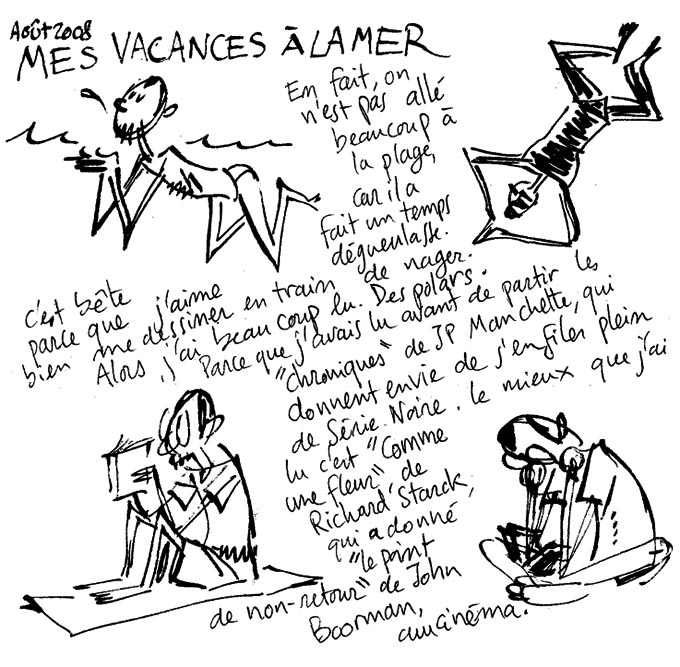 Août 2008
MES VACANCES À LA MER
En fait, on
n'est pas allé
beaucoup à
la plage,
car il a
fait un temps
dégueulasse.
c'est bête
parce que j'aime
bien me dessiner en train de nager.
Alors, j'ai beaucoup lu. Des polars.
Parce que j'avais lu avant de partir les
"chroniques" de JP Manchette, qui
donnent envie de s'enfiler plein
de Série Noire. Le mieux que j'ai
lu c'est "Comme
une fleur" de
Richard Starck,
qui a donné,
"le point
de non-retour" de John
Boorman,
au cinéma.